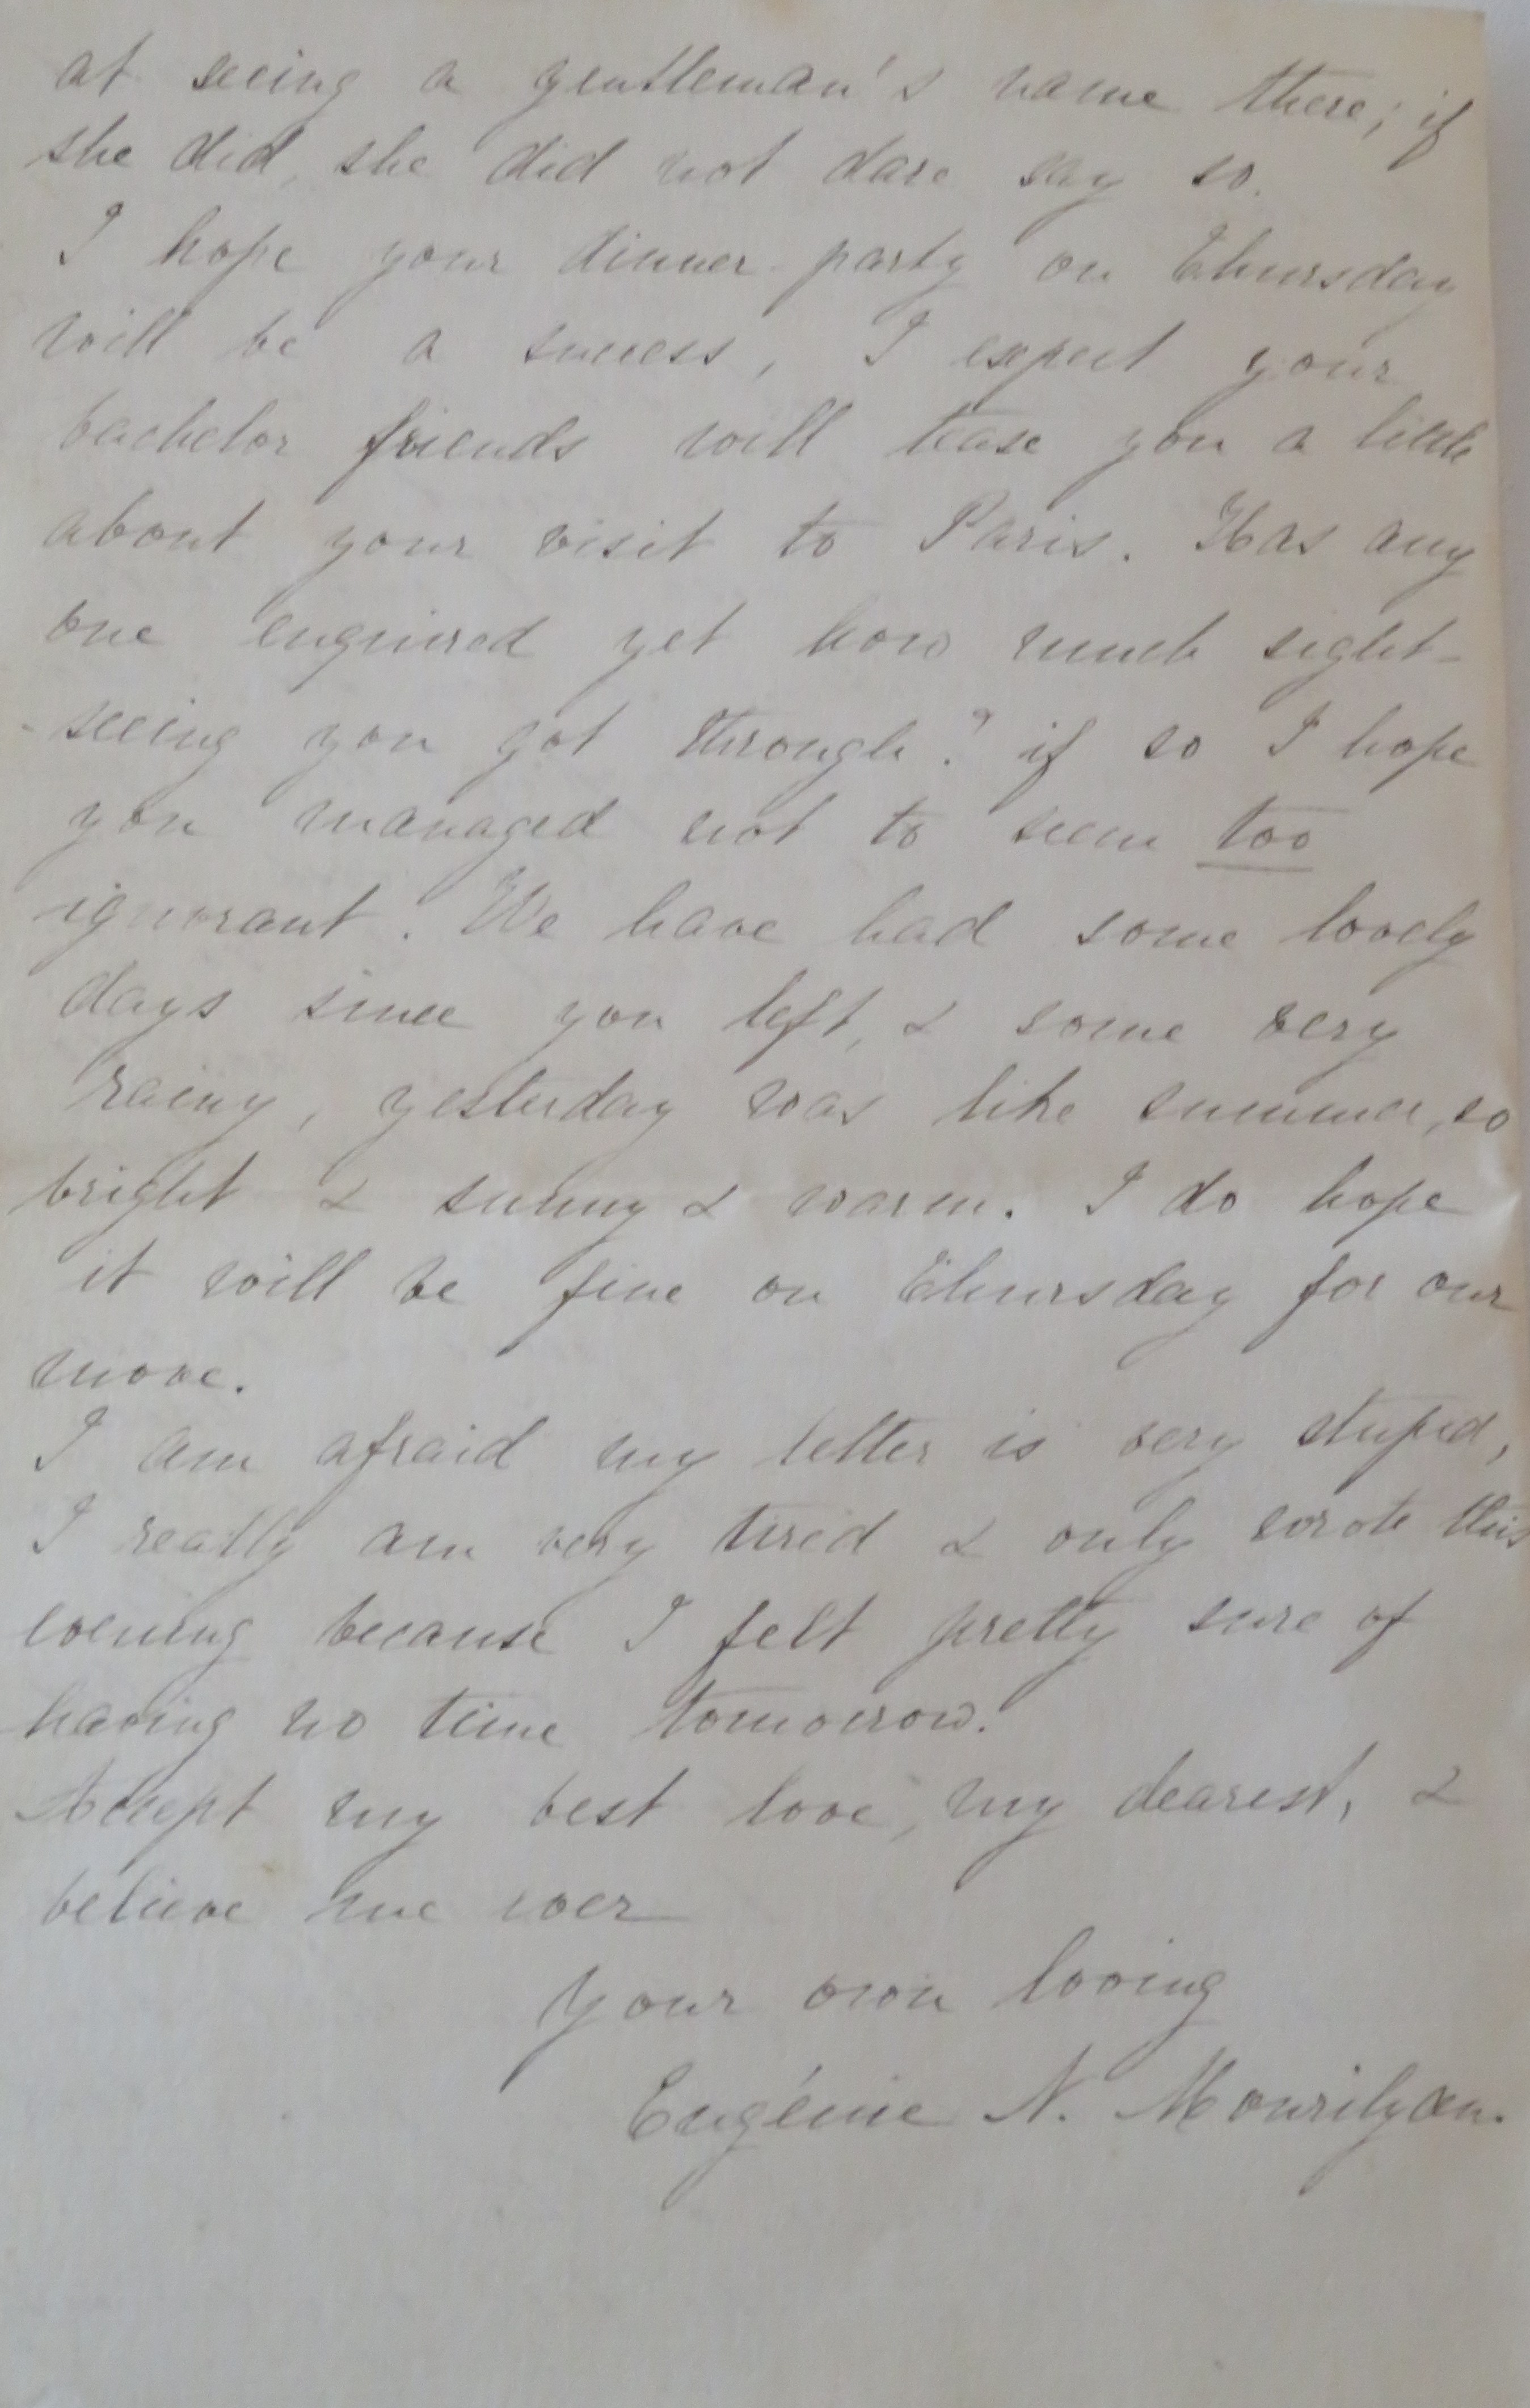 at seeing a gentleman's name there; if
she did, she did not dare say so.
I hope your dinner party on Thursday
will be a success, I expect your
bachelor friends will tease you a little
about your visit to Paris. Has any
one enquired yet how much sight-
-seeing you got through? if so I hope
you managed not to seem too
ignorant. We have had some lovely
days since you left, & some very
rainy, yesterday was like summer, so
bright & sunny & warm. I do hope
it will be fine on Thursday for our
move.
I am afraid my letter is very stupid,
I really am very tired & only wrote this
evening because I felt pretty sure of
having no time tomorrow.
Accept my best love, my dearest, &
believe me ever
your own loving
Eugénie N. Mourilyan.